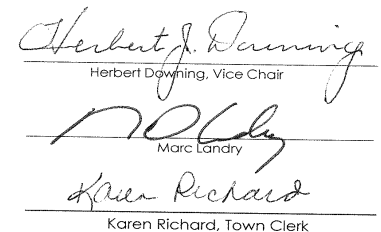 Herbert J. Downing
Herbert Downing, Vice Chair
Marc Landry
Karen Richard
Karen Richard, Town Clerk